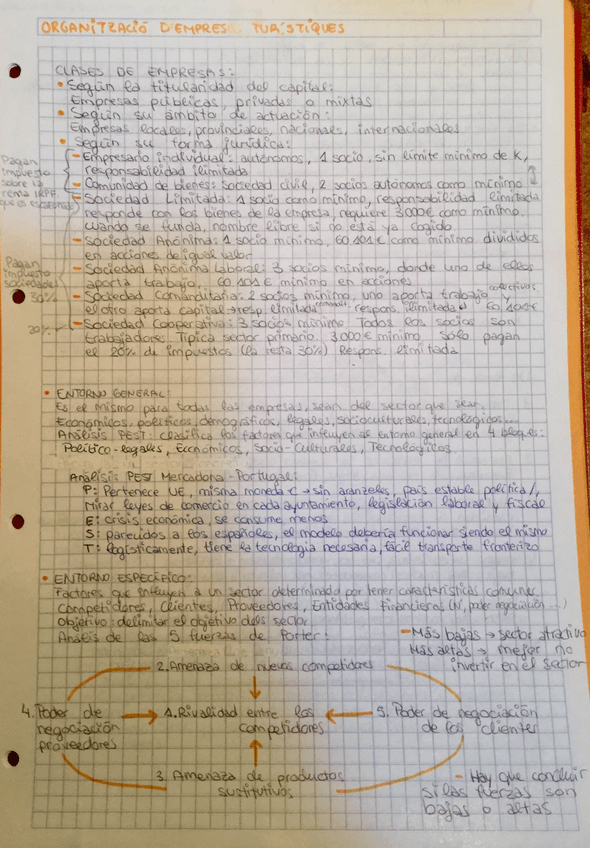 ORGANITZACIÓ D'EMPRESES TURÍSTIQUES
CLASES DE EMPRESAS:
• Según la titularidad del capital:
Empresas públicas, privadas o mixtas
• Según su ámbito de actuación:
Empresas locales, provinciales, nacionales, internacionales
• Según su forma jurídica:
- Empresario individual: autónomos, 1 socio, sin límite mínimo de K,
responsabilidad ilimitada
- Comunidad de bienes: Sociedad civil, 2 socios autónomos como mínimo
Pagan
impuesto
sobre la
renta IRPF
que es escalonado
- Sociedad Limitada: 1 socio como mínimo, responsabilidad limitada
responde con los bienes de la empresa, requiere 3000€ como mínimo
cuando se funda, nombre libre si no está ya cogido
- Sociedad Anónima: 1 socio mínimo, 60 101€ como mínimo divididos
en acciones de igual valor
- Sociedad Anónima Laboral: 3 socios mínimo, donde uno de ellos
aporta trabajo, 60 101€ mínimo en acciones
- Sociedad Comanditaria: 2 socios mínimo, uno aporta trabajo y
colectivos
el otro aporta capital → resp. limitada respons. ilimitada 60.101€
- Sociedad Cooperativa: 3 socios mínimo. Todos los socios son
trabajadores. Típica sector primario. 3000€ mínimo. Sólo pagan
el 20% de impuestos (la resta 30%) Respons. limitada
Pagan
impuesto
sociedades
30%
20%
• ENTORNO GENERAL:
Es el mismo para todas las empresas, sean del sector que sean.
Económicos, políticos, demográficos, legales, socioculturales, tecnológicos...
Análisis PEST: clasifica los factores que influyen al entorno general en 4 bloques:
Político-legales, Económicos, Socio-Culturales, Tecnológicos
Análisis PEST Mercadona-Portugal:
P: Pertenece UE, misma moneda € → sin aranzeles, país estable política/,
Mirar leyes de comercio en cada ayuntamiento, legislación laboral y fiscal
E: crisis económica, se consume menos
S: parecidos a los españoles, el modelo debería funcionar siendo el mismo
T: logísticamente, tiene la tecnología necesaria, fácil transporte fronterizo
• ENTORNO ESPECÍFICO:
Factores que influyen a un sector determinado por tener características comunes
Competidores, Clientes, Proveedores, Entidades Financieras (Nº, poder negociación...)
Objetivo: delimitar el objetivo del sector
Análisis de las 5 fuerzas de Porter:
- Más bajas → sector atractivo
Más altas → mejor no
invertir en el sector
2. Amenaza de nuevos competidores
4. Poder de
negociación
proveedores
1. Rivalidad entre los
competidores
5. Poder de negociación
de los clientes
3. Amenaza de productos
sustitutivos
- Hay que concluir
si las fuerzas son
bajas o altas